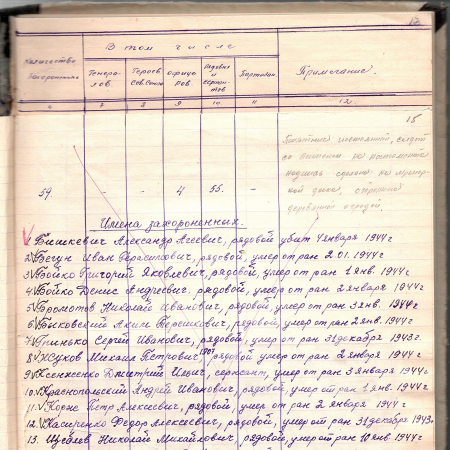 В том числе
Количество захороненных
Генера-лов
Героев Сов. Союза
офицеров
Рядовых и сержантов
Партизан
Примечание.
6 7 8 9 10 11 12
15
Памятник
деревянной оградой.
59. - - 4 55. -
Имена захороненных.
1. Бишкевич Александр Агеевич, рядовой убит 4 января 1944 г
2. Бегун Иван Герасимович, рядовой, умер от ран 2.01.1944 г
3. Бойко Григорий Яковлевич, рядовой, умер от ран 1 янв. 1944 г
4. Бойко Денис Андреевич, рядовой, умер от ран 2 января 1944 г
5. Бромотов Николай Иванович, рядовой, умер от ран 3 янв. 1944 г
6. Быковский Аким Терешкович, рядовой, умер от ран 2 янв. 1944 г
7. Гринько Сергей Иванович, рядовой, умер от ран 31 декабря 1943 г
8. Жуков Михаил Петрович, рядовой, умер от ран 2 января 1944 г
9. Ксенженко Дмитрий Ильич, сержант, умер от ран 3 января 1944 г
10. Краснопольский Андрей Иванович, рядовой, умер от ран 1 янв. 1944 г
11. Корж Петр Алексеевич, рядовой, умер от ран 2 января 1944 г
12. Касиренко Федор Алексеевич, рядовой, умер от ран 31 декабря 1943 г
13. Щеблев Николай Михайлович, рядовой, умер от ран 10 янв 1944 г